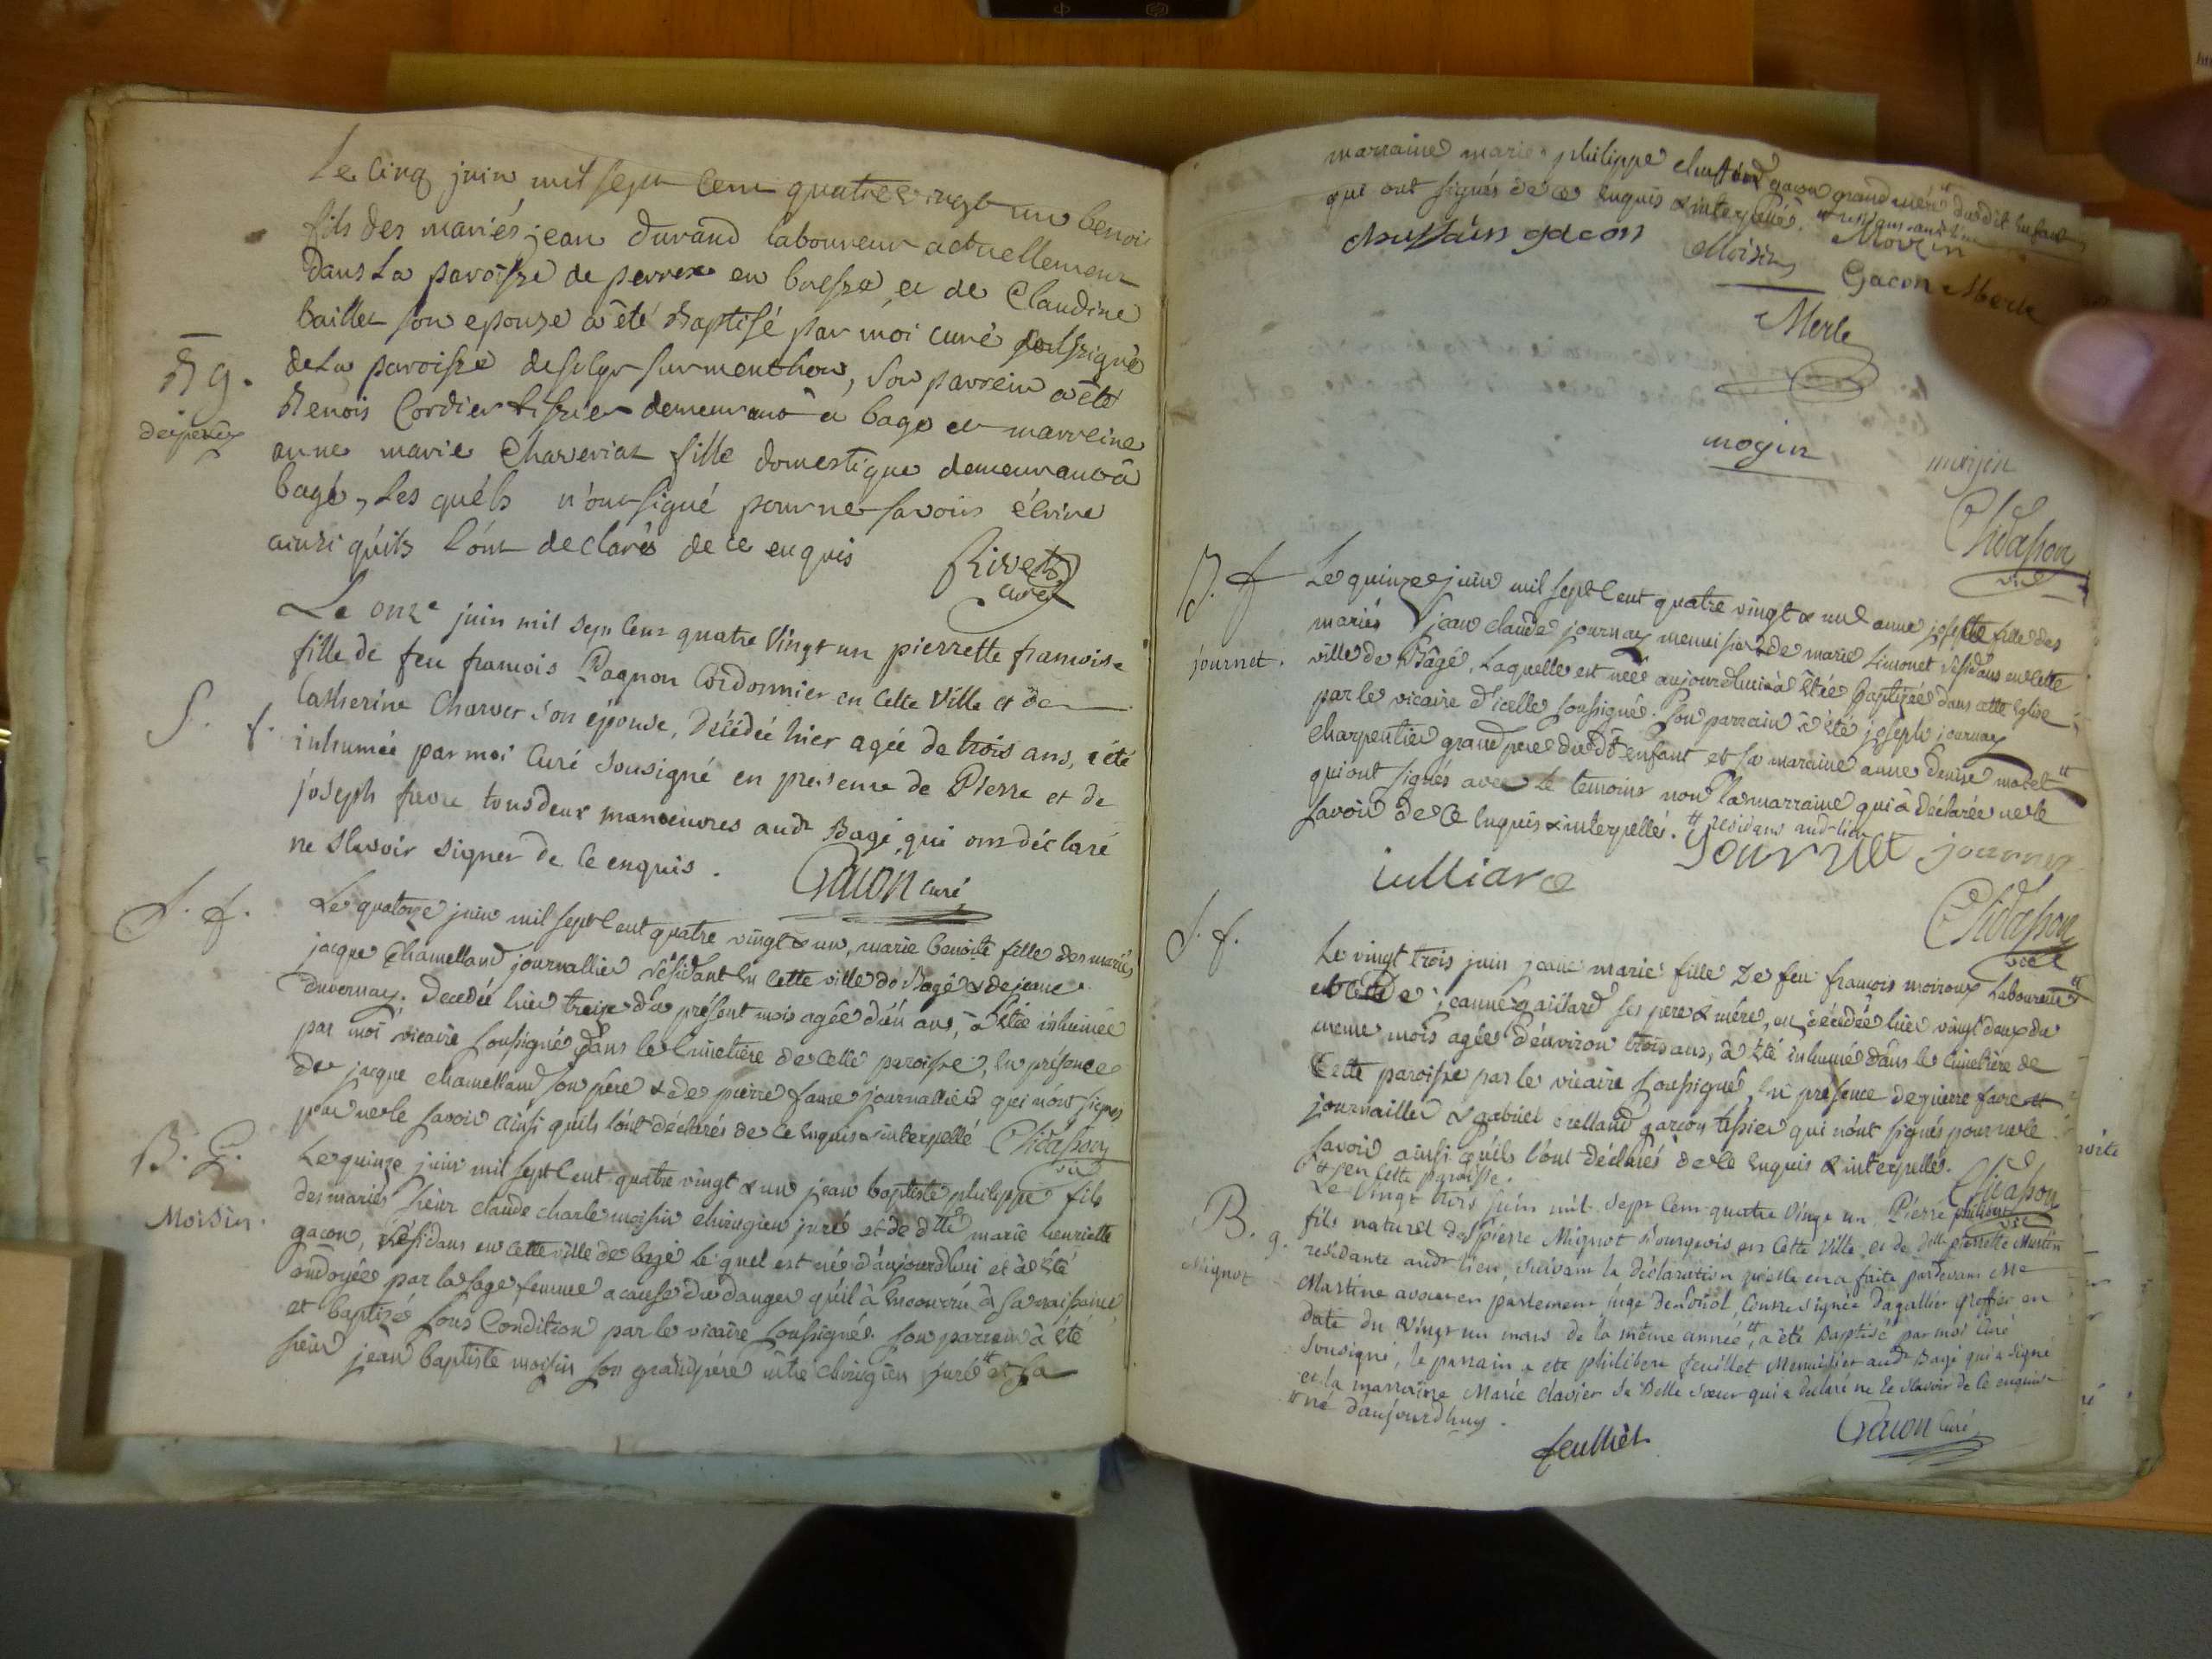 Le Cinq juin mil sept Cent quatre vingt un benoi
fils des mariés jean durand laboureur actuellement
dans La paroisse de perrex en bresse et de Claudine
baillet son epouse a été Baptisé par moi curé soussigné
Bg.
de La paroisse de st cyr sur menthon, Son parrein a été
Benois Cordier tissier demeurant à bagé et marreine
anne marie Charveriat fille domestique demeurant à
bagé, Les quéls n'ont signé pour ne savoir écrire
ainsi qúils L'ont declarés de ce enquis
Rivet
curé
Le onze juin mil sept Cent quatre Vingt un pierrette francoise
fille de feu francois Pagnon Cordonnier en Cette Ville et de
S. f.
Catherine Charvet Son épouse, Décédée hier agée de trois ans, a été
inhumée par moi Curé Sousigné en presence de Pierre et de
joseph favre tous deux manoeuvres audt Bagé, qui ont déclaré
ne Scavoir Signer de Ce enquis.
Gacon Curé
S. f.
Le quatorze juin mil sept Cent quatre vingt & un, marie benoite fille des mariés
jacque Chamelland journallier résidant En Cette ville de Bagé & de jeanne
duvernay. decedée hier treize du présent mois agée d'un ans, à Etée inhumée
par moi vicaire soussigné dans le Cimetière de Cette paroisse, En présence
de jacque chamelland son père & de pierre favre journallier qui n'ont signés
pour ne le savoir ainsi quils l'ont déclarés de Ce Enquis & interpellé
Chidasson
vic
B. G.
Le quinze juin mil sept Cent quatre vingt & un jean baptiste philippe fils
Moisin.
des mariés sieur claude charle moisin chirugien juré et de dlle marie henriette
gacon, Résidans en cette ville de bagé le quel est né d'aujourdhui et à Eté
ondoyée par la sage femme a cause du danger qu'il à Encourru à sa naissance
et baptisé sous Condition par le vicaire soussigné. son parrain à Eté
sieur jean baptiste moisin son grandpère mtre chirugien juré et sa
marraine marie philippe chussain gacon grand mère dudit Enfant
qui ont signés de ce Enquis & interpellés.
chussain gacon
Moisin
Moizin
Gacon Merle
Merle
moyin
Chidasson
vic
B. f
journet.
Le quinze juin mil sept Cent quatre vingt & un anne josephte fille des
mariés jean claude journay menuisier & de marie Simonet résidans en Cette
ville de Bâgé, Laquelle est née aujourdhui à Etée baptizée dans cette Eglise
par le vicaire d'icelle soussigné. Son parrain à Eté joseph journay
charpentier grand pere du dt enfant et sa maraine anne denise mabet
qui ont signés avec le temoins non La marraine qui à déclarée ne le
savoir de Ce Enquis & interpellés. résidans aud. lieu
julliard
journet
Chidasson
vic
S. f.
Le vingt trois juin jeanne marie fille De feu francois moiroux Laboureur
et de jeanne gaillard ses pere & mére, décédée hier vingt deux du
meme mois agée d'environ trois ans, à Eté inhumée dans le Cimetière de
Cette paroisse par le vicaire soussigné, En présence de pierre favre
journallier & gabriel crelland garçon tissier qui n'ont signés pour ne le
savoir ainsi qúils l'ont déclarés de Ce Enquis & interpellés.
en Cette paroisse.
Chidasson
vic
B. g.
Mignot
Le Vingt trois juin mil Sept Cent quatre Vingt un Pierre philibert
fils naturel de pierre Mignot Bourgeois en Cette Ville et de dlle pierrette Martin
residante audt lieu, Suivant la déclaration qu'elle en a faite pardevant Me
Martine avocat en parlement juge Contresignée dagallier greffier en
date du Vingt un mars de la même année, a été Baptisé par moi Curé
Sousigné, le parrain a ete philibert feuillet Menuisier audt Bagé qui a Signé
et la marraine Marie clavier Sa Belle soeur qui a declaré ne le Scavoir de Ce enquise
né d'aujourdhuy.
feulliet
Gacon Curé